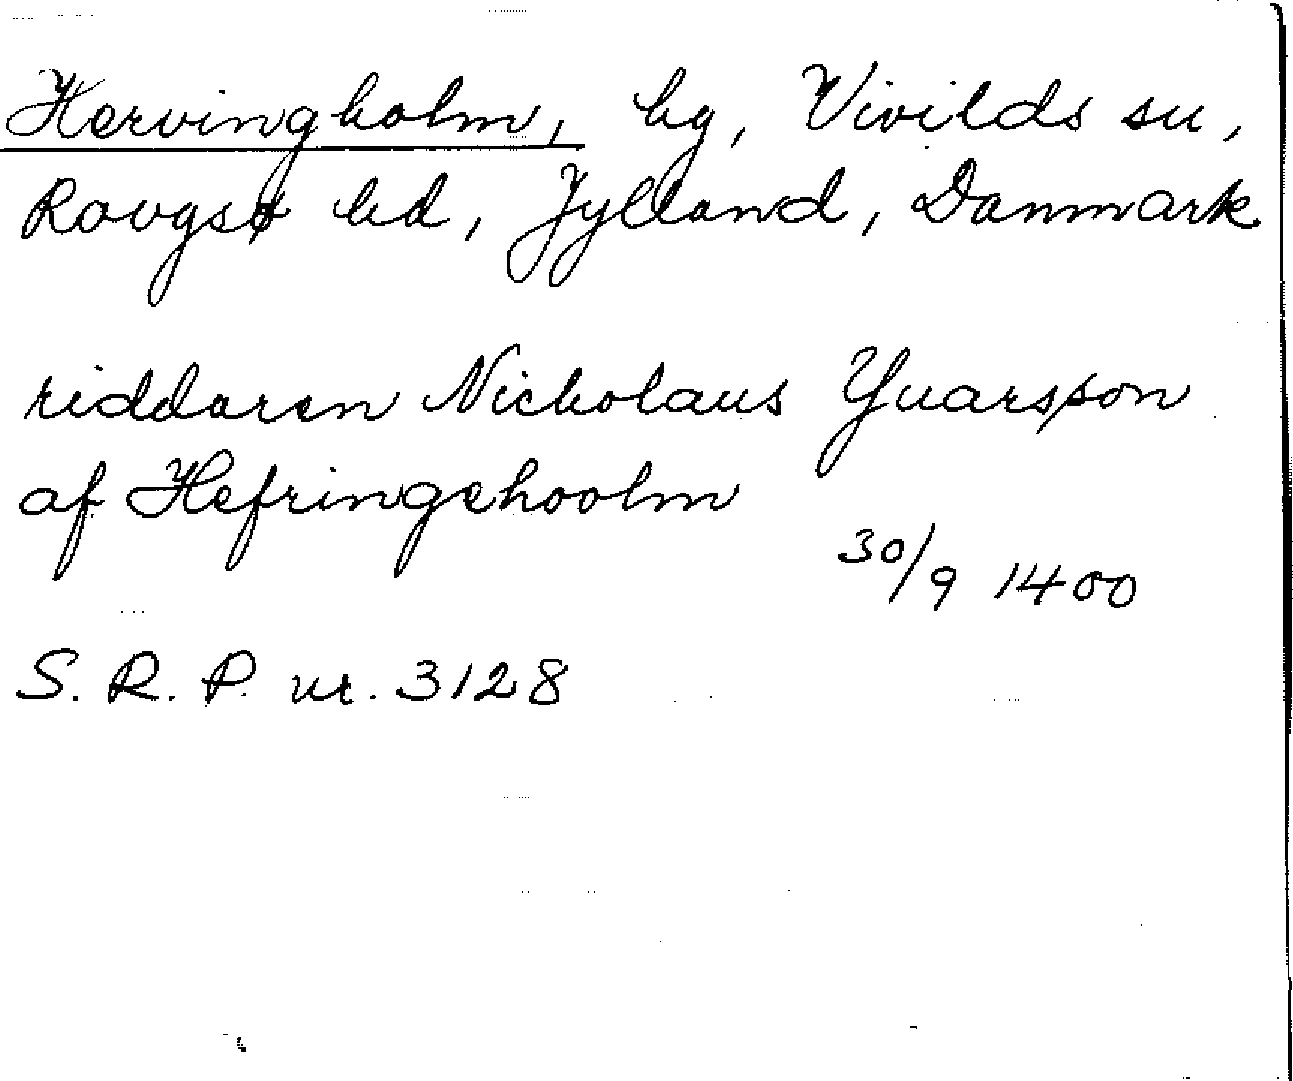 Hervingholm, hg, Vivilds sn,
Rougsø hd, Jylland, Danmark
riddaren Nicholaus Yuarsson
af Hefringehoolm
30/9 1400
S. R. P. nr. 3128